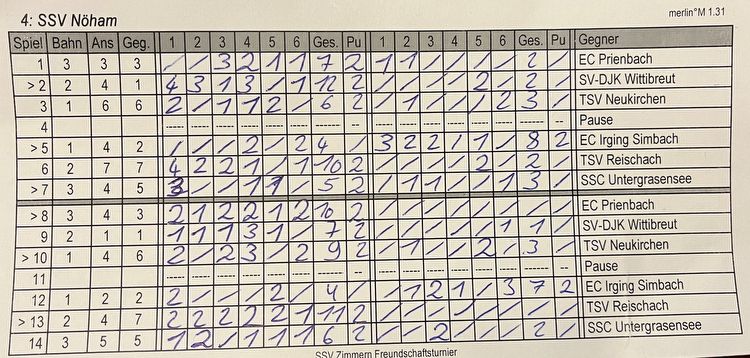 4: SSV Nöham merlin°M 1.31
Spiel Bahn Ans Geg. 1 2 3 4 5 6 Ges. Pu 1 2 3 4 5 6 Ges. Pu Gegner
1 3 3 3 / / 3 2 1 1 7 2 1 1 / / / / 2 / EC Prienbach
> 2 2 4 1 4 3 1 3 / 1 12 2 / / / / 2 / 2 / SV-DJK Wittibreut
3 1 6 6 2 / 1 1 2 / 6 2 / 1 / / / 2 3 / TSV Neukirchen
4 ----- ----- ----- ----- ----- ----- ----- -- ----- ----- ----- ----- ----- ----- ----- -- Pause
> 5 1 4 2 / / / 2 / 2 4 / 3 2 2 / 1 / 8 2 EC Irging Simbach
6 2 7 7 4 2 2 1 / 1 10 2 / / / / 2 / 2 / TSV Reischach
> 7 3 4 5 3 / / 1 1 / 5 2 / 1 1 / / 1 3 / SSC Untergrasensee
> 8 3 4 3 2 1 2 2 1 2 10 2 / / / / / / / / EC Prienbach
9 2 1 1 1 1 1 3 1 / 7 2 / / / / / 1 1 / SV-DJK Wittibreut
> 10 1 4 6 2 / 2 3 / 2 9 2 / 1 / / 2 / 3 / TSV Neukirchen
11 ----- ----- ----- ----- ----- ----- ----- -- ----- ----- ----- ----- ----- ----- ----- -- Pause
12 1 2 2 2 / / / 2 / 4 / / 1 2 1 / 3 7 2 EC Irging Simbach
> 13 2 4 7 2 2 2 2 2 1 11 2 / / / / / / / / TSV Reischach
14 3 5 5 1 2 / 1 1 1 6 2 / / 2 / / / 2 / SSC Untergrasensee
SSV Zimmern Freundschaftsturnier